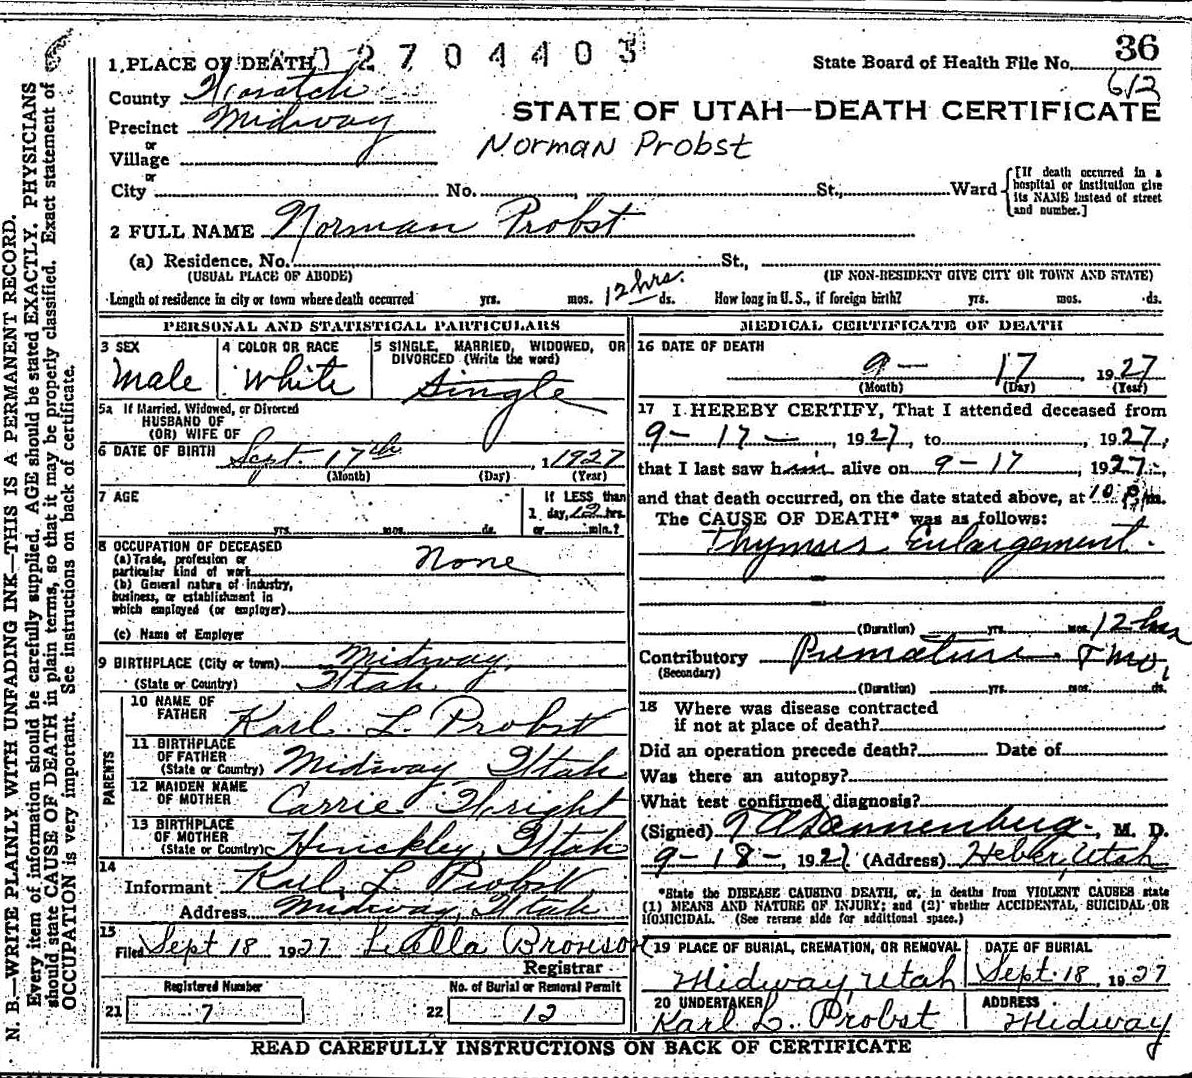 36
2 7 0 4 4 0 3
1. PLACE OF DEATH
State Board of Health File No.
612
County Wasatch
STATE OF UTAH—DEATH CERTIFICATE
Precinct Midway
or
Norman Probst
Village
or
City No. , St., Ward
[If death occurred in a hospital or institution give its NAME instead of street and number.]
2 FULL NAME Norman Probst
(a) Residence, No. St.,
(USUAL PLACE OF ABODE) (IF NON-RESIDENT GIVE CITY OR TOWN AND STATE)
Length of residence in city or town where death occurred yrs. mos. 12 hrs. ds. How long in U.S., if foreign birth? yrs. mos. ds.
PERSONAL AND STATISTICAL PARTICULARS
3 SEX
Male
4 COLOR OR RACE
White
5 SINGLE, MARRIED, WIDOWED, OR DIVORCED (Write the word)
Single
5a If Married, Widowed, or Divorced
HUSBAND OF
(OR) WIFE OF
6 DATE OF BIRTH Sept. 17th, 1 1927
(Month) (Day) (Year)
7 AGE
yrs. mos. ds.
If LESS than
1 day, 12 hrs.
or min.?
8 OCCUPATION OF DECEASED
None
(a) Trade, profession or
particular kind of work
(b) General nature of industry,
business, or establishment in
which employed (or employer)
(c) Name of Employer
9 BIRTHPLACE (City or town) Midway,
(State or Country) Utah
PARENTS
10 NAME OF FATHER Karl L. Probst
11 BIRTHPLACE OF FATHER
(State or Country) Midway Utah
12 MAIDEN NAME OF MOTHER Carrie Wright
13 BIRTHPLACE OF MOTHER
(State or Country) Hinckley, Utah
14
Informant Karl L. Probst,
Address Midway, Utah
15
Filed Sept 18 1927 LaElla Bronson
Registrar
Registered Number
21 7
No. of Burial or Removal Permit
22 12
MEDICAL CERTIFICATE OF DEATH
16 DATE OF DEATH
9 — 17, 1927
(Month) (Day) (Year)
17 I HEREBY CERTIFY, That I attended deceased from
9 - 17 —, 1927, to , 1927,
that I last saw him alive on 9 - 17, 1927,
and that death occurred, on the date stated above, at 10 P.m.
The CAUSE OF DEATH* was as follows:
Thymus Enlargement.
(Duration) yrs. mos. 12 hrs
Contributory Premature.
(Secondary)
(Duration) yrs. mos. ds.
18 Where was disease contracted
if not at place of death?
Did an operation precede death? Date of
Was there an autopsy?
What test confirmed diagnosis?
(Signed) T A Dannenberg, M. D.
9 - 18 -, 1927 (Address) Heber, Utah
*State the DISEASE CAUSING DEATH, or, in deaths from VIOLENT CAUSES state
(1) MEANS AND NATURE OF INJURY; and (2) whether ACCIDENTAL, SUICIDAL OR
HOMICIDAL. (See reverse side for additional space.)
19 PLACE OF BURIAL, CREMATION, OR REMOVAL
Midway, Utah
DATE OF BURIAL
Sept. 18 1927
20 UNDERTAKER
Karl L. Probst
ADDRESS
Midway
READ CAREFULLY INSTRUCTIONS ON BACK OF CERTIFICATE
N. B.—WRITE PLAINLY WITH UNFADING INK—THIS IS A PERMANENT RECORD.
Every item of information should be carefully supplied. AGE should be stated EXACTLY. PHYSICIANS
should state CAUSE OF DEATH in plain terms, so that it may be properly classified. Exact statement of
OCCUPATION is very important. See instructions on back of certificate.